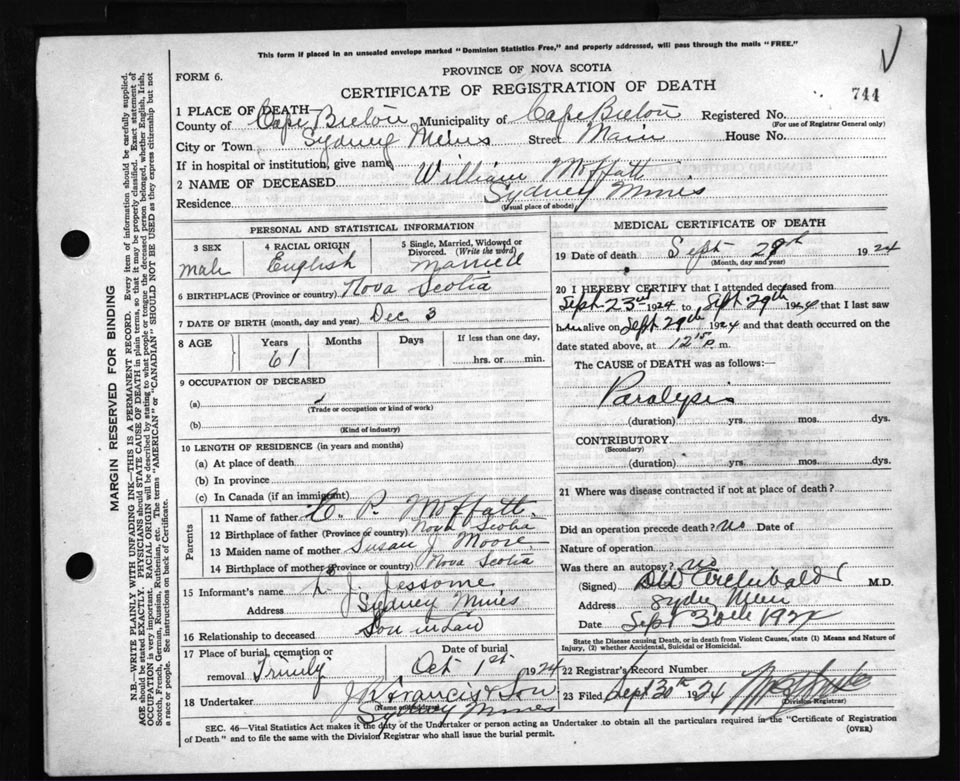 This form if placed in an unsealed envelope marked "Dominion Statistics Free," and properly addressed, will pass through the mails "FREE."
FORM 6.
PROVINCE OF NOVA SCOTIA
CERTIFICATE OF REGISTRATION OF DEATH
744
1 PLACE OF DEATH—
County of Cape Breton Municipality of Cape Breton Registered No.
(For use of Registrar General only)
City or Town Sydney Mines Street Main House No.
If in hospital or institution, give name
2 NAME OF DECEASED William Moffatt
Residence Sydney Mines
(Usual place of abode)
PERSONAL AND STATISTICAL INFORMATION
3 SEX 4 RACIAL ORIGIN 5 Single, Married, Widowed or Divorced. (Write the word)
Male English Married
6 BIRTHPLACE (Province or country) Nova Scotia
7 DATE OF BIRTH (month, day and year) Dec 3
8 AGE Years Months Days If less than one day,
61 hrs. or min.
9 OCCUPATION OF DECEASED
(a)
(Trade or occupation or kind of work)
(b)
(Kind of industry)
10 LENGTH OF RESIDENCE (in years and months)
(a) At place of death
(b) In province
(c) In Canada (if an immigrant)
Parents
11 Name of father P. Moffatt.
12 Birthplace of father (Province or country) Nova Scotia
13 Maiden name of mother Susan J Moore
14 Birthplace of mother (Province or country) Nova Scotia
15 Informant's name J. Jessome
Address Sydney Mines
16 Relationship to deceased Son in Law
17 Place of burial, cremation or removal Trinity Date of burial Oct 1st 1924
18 Undertaker J R Francis & Son
(Name and address)
Sydney Mines
MEDICAL CERTIFICATE OF DEATH
19 Date of death Sept 29th 1924
(Month, day and year)
20 I HEREBY CERTIFY that I attended deceased from
Sept 23rd 1924 to Sept 29th 1924 that I last saw
him alive on Sept 29th 1924 and that death occurred on the
date stated above, at 12 15 P. m.
The CAUSE of DEATH was as follows:
Paralysis
(duration) yrs. mos. dys.
CONTRIBUTORY
(Secondary)
(duration) yrs. mos. dys.
21 Where was disease contracted if not at place of death?
Did an operation precede death? no Date of
Nature of operation
Was there an autopsy? no
(Signed) Archibald M.D.
Address Sydney Mines
Date Sept 30th 192
State the Disease causing Death, or in death from Violent Causes, state (1) Means and Nature of Injury, (2) whether Accidental, Suicidal or Homicidal.
22 Registrar's Record Number
23 Filed Sept 30th 1924
(Division Registrar)
SEC. 46—Vital Statistics Act makes it the duty of the Undertaker or person acting as Undertaker to obtain all the particulars required in the "Certificate of Registration
of Death" and to file the same with the Division Registrar who shall issue the burial permit.
(OVER)
MARGIN RESERVED FOR BINDING
N.B.—WRITE PLAINLY WITH UNFADING INK—THIS IS A PERMANENT RECORD. Every item of information should be carefully supplied.
AGE should be stated EXACTLY. PHYSICIANS should STATE CAUSE OF DEATH in plain terms, so that it may be properly classified. Exact statement of
OCCUPATION is very important. RACIAL ORIGIN will be described by stating to what people or tongue the deceased person belonged, whether English, Irish,
Scotch, French, German, Russian, Ruthenian, etc. The terms "AMERICAN" or "CANADIAN" SHOULD NOT BE USED as they express citizenship but not
a race or people. See instructions on back of Certificate.